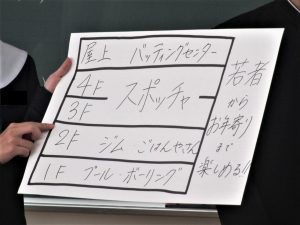 屋上 バッティングセンター
4F
スポッチャ
3F
2F ジム ごはんやさん
1F プール・ボーリング
若者
から
お年寄り
まで
楽しめる!!